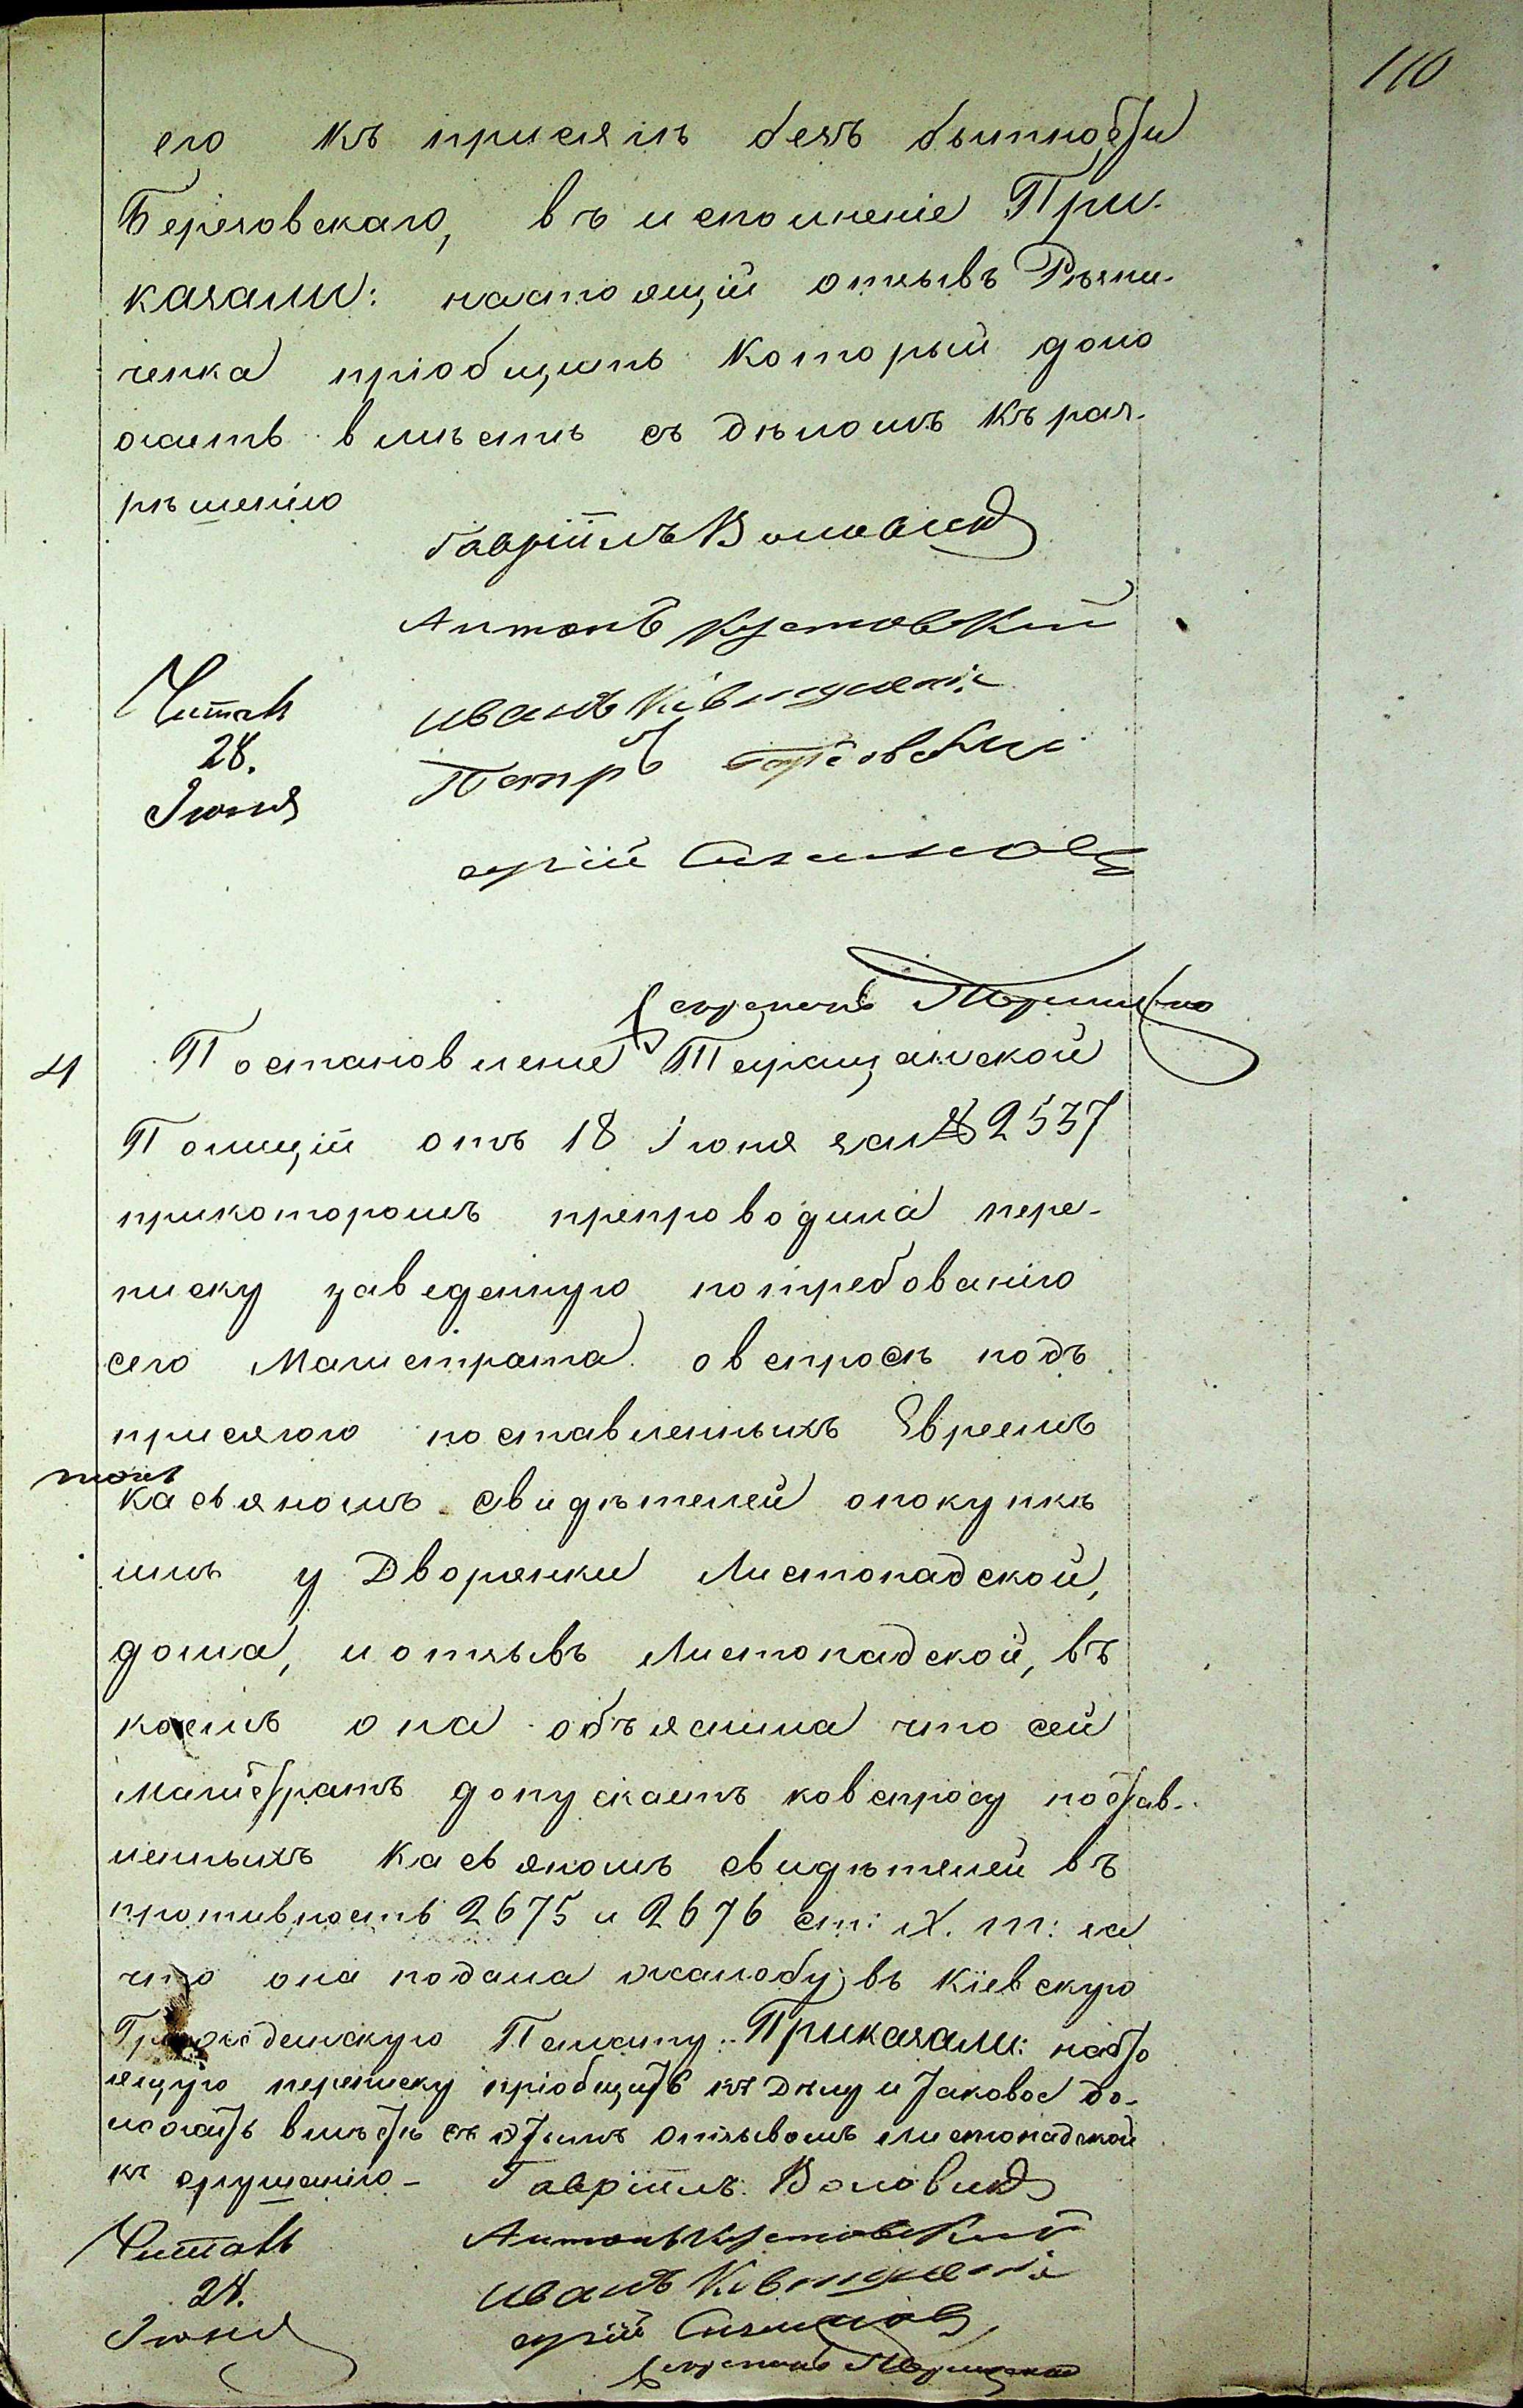 110
его къ присягѣ безъ бытности
Березовскаго, въ исполненіе При-
казали: настоящій отзывъ Рѣзни-
ченка пріобщить который доло
жить вмѣстѣ съ дѣломъ къ раз-
рѣшенію
Гавріилъ Воловикъ
Антонъ Кустовский
Читалъ
28.
Іюня
Иванъ
Петръ
юрій
Секретарь
4 Постановление Таращанской
Полиціи отъ 18 Іюня за № 2537
прикоторомъ препроводила пере-
писку заведенную потребованію
сего Магистрата овспросѣ подъ
присягою поставленныхъ Евреемъ
Касьяномъ свидѣтелей опокупкѣ
имъ у Дворянки Листопадской,
дома, и отзывъ Листопадской, въ
коемъ она объяснила что сей
Магистратъ допускаетъ ковспросу постав-
ленныхъ Касьяномъ свидѣтелей въ
противность 2675 и 2676 ст: X. т: за
что она подала жалобу въ Кіевскую
Гражданскую Палату: Приказали: насто
ящую переписку пріобщить къ Дѣлу и таковое до-
ложить вмѣстѣ съ этимъ отзывомъ Листопадской
къ слушанію - Гавріилъ Воловикъ
Читалъ
28.
Іюня
Антонъ Кустовский
Иванъ
юрій
Секретарь